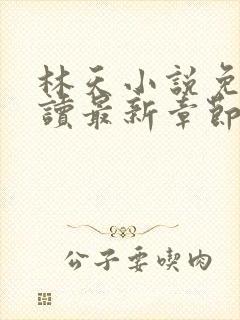 林天小説免
讀最新章節
公子要喫肉